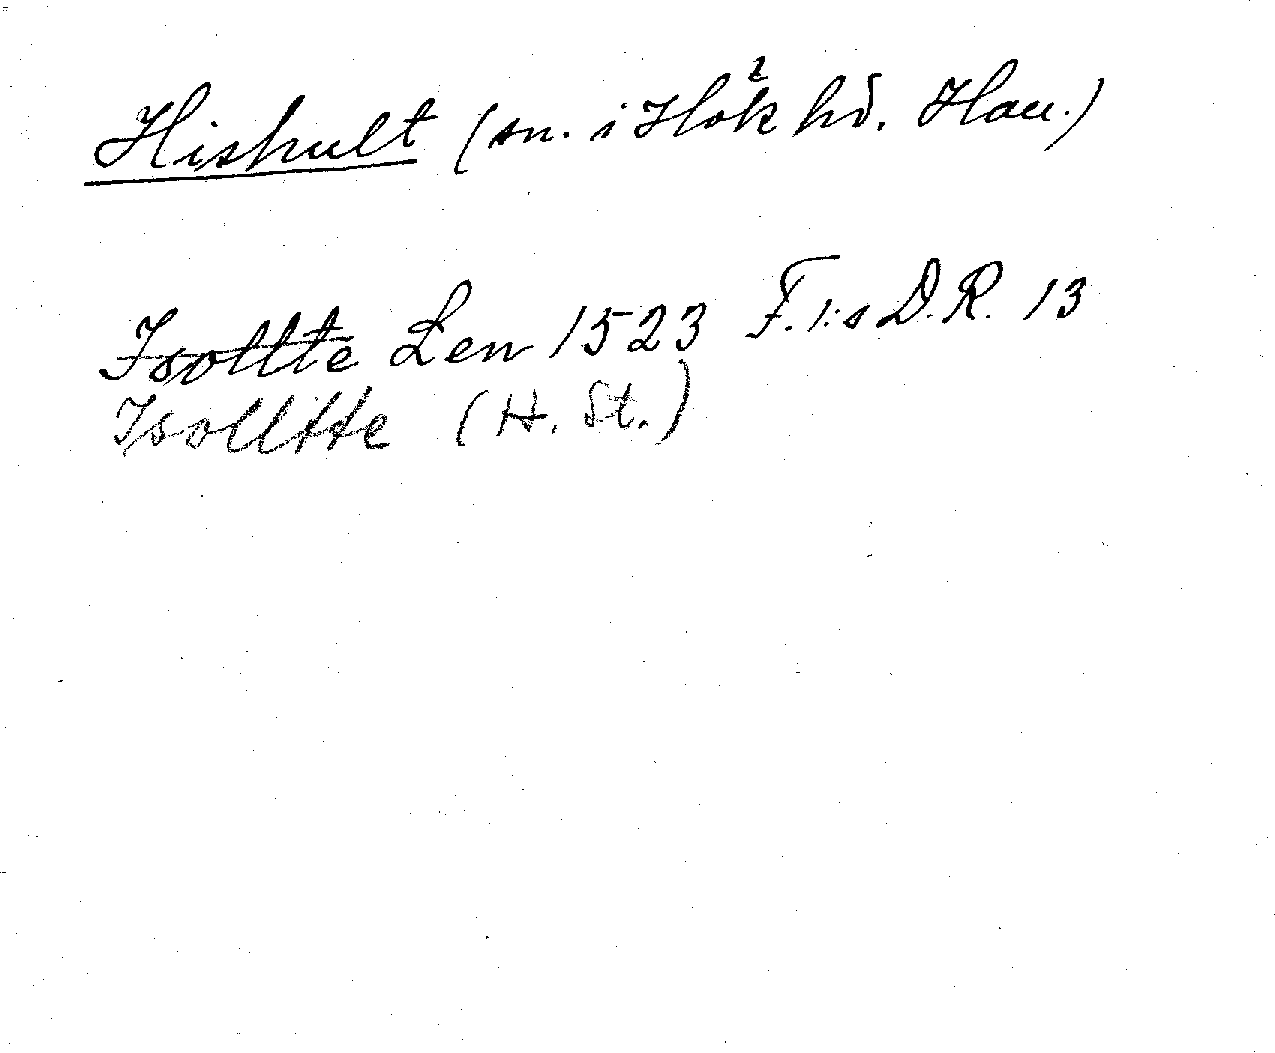 Hishult (sn. i Hök hd. Hall.)
Isollte Len 1523 F.1:s D.R. 13
Isolltte (H. St.)